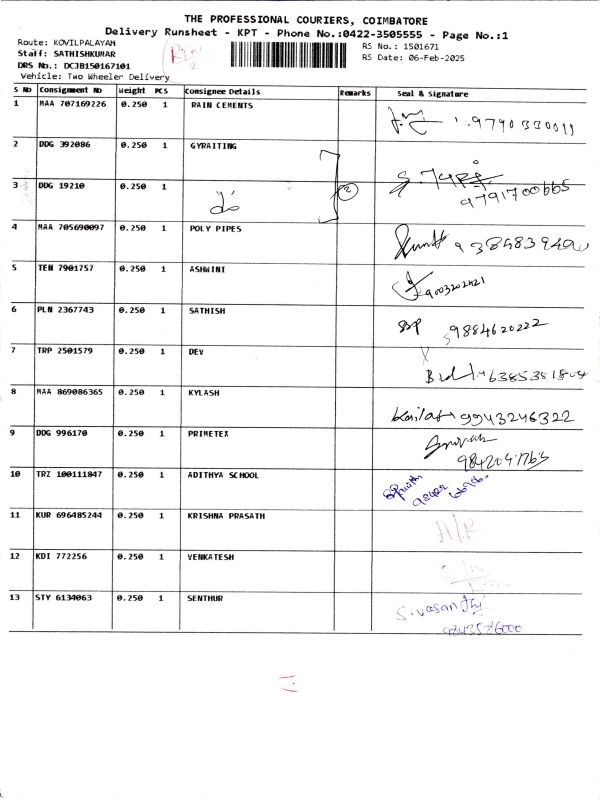 THE PROFESSIONAL COURIERS, COIMBATORE
Delivery Runsheet - KPT - Phone No.:0422-3505555 - Page No.:1
Route: KOVILPALAYAM
Staff: SATHISHKUMAR
DRS No.: DCJB150167101
Vehicle: Two Wheeler Delivery
RS No.: 1501671
RS Date: 06-Feb-2025
S No Consignment No Weight PCS Consignee Details Remarks Seal & Signature
1 MAA 707169226 0.250 1 RAIN CEMENTS 9790330011
2 DDG 392086 0.250 1 GYRAITING
3 DDG 19210 0.250 1 do 2 9791700665
4 MAA 705690097 0.250 1 POLY PIPES
5 TEN 7901757 0.250 1 ASHWINI 9003202421
6 PLN 2367743 0.250 1 SATHISH BP 9884620222
7 TRP 2501579 0.250 1 DEV
8 MAA 869086365 0.250 1 KYLASH Kailash 9943246322
9 DDG 996170 0.250 1 PRIMETEX
10 TRZ 100111847 0.250 1 ADITHYA SCHOOL
11 KUR 696485244 0.250 1 KRISHNA PRASATH
12 KDI 772256 0.250 1 VENKATESH
13 STY 6134063 0.250 1 SENTHUR S.vasanthi
9843576000